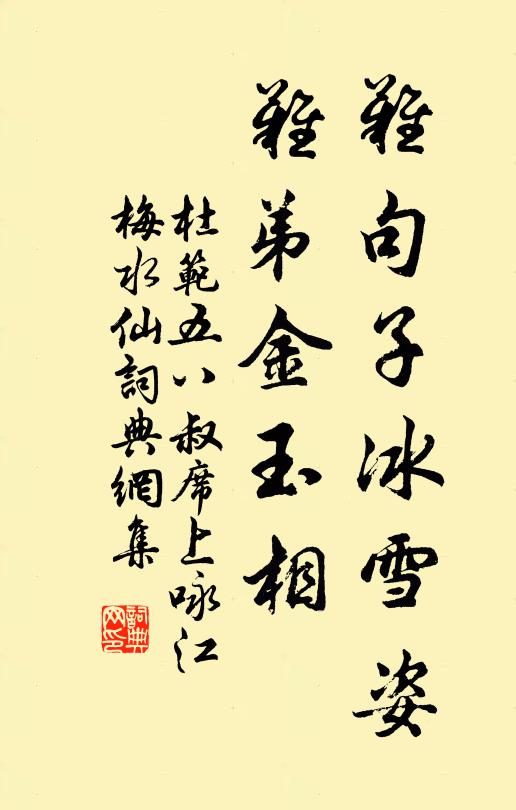 難句子冰雪姿
難弟金玉相
杜範五八叔席上咏江
梅水仙詞典網集
詞典网印